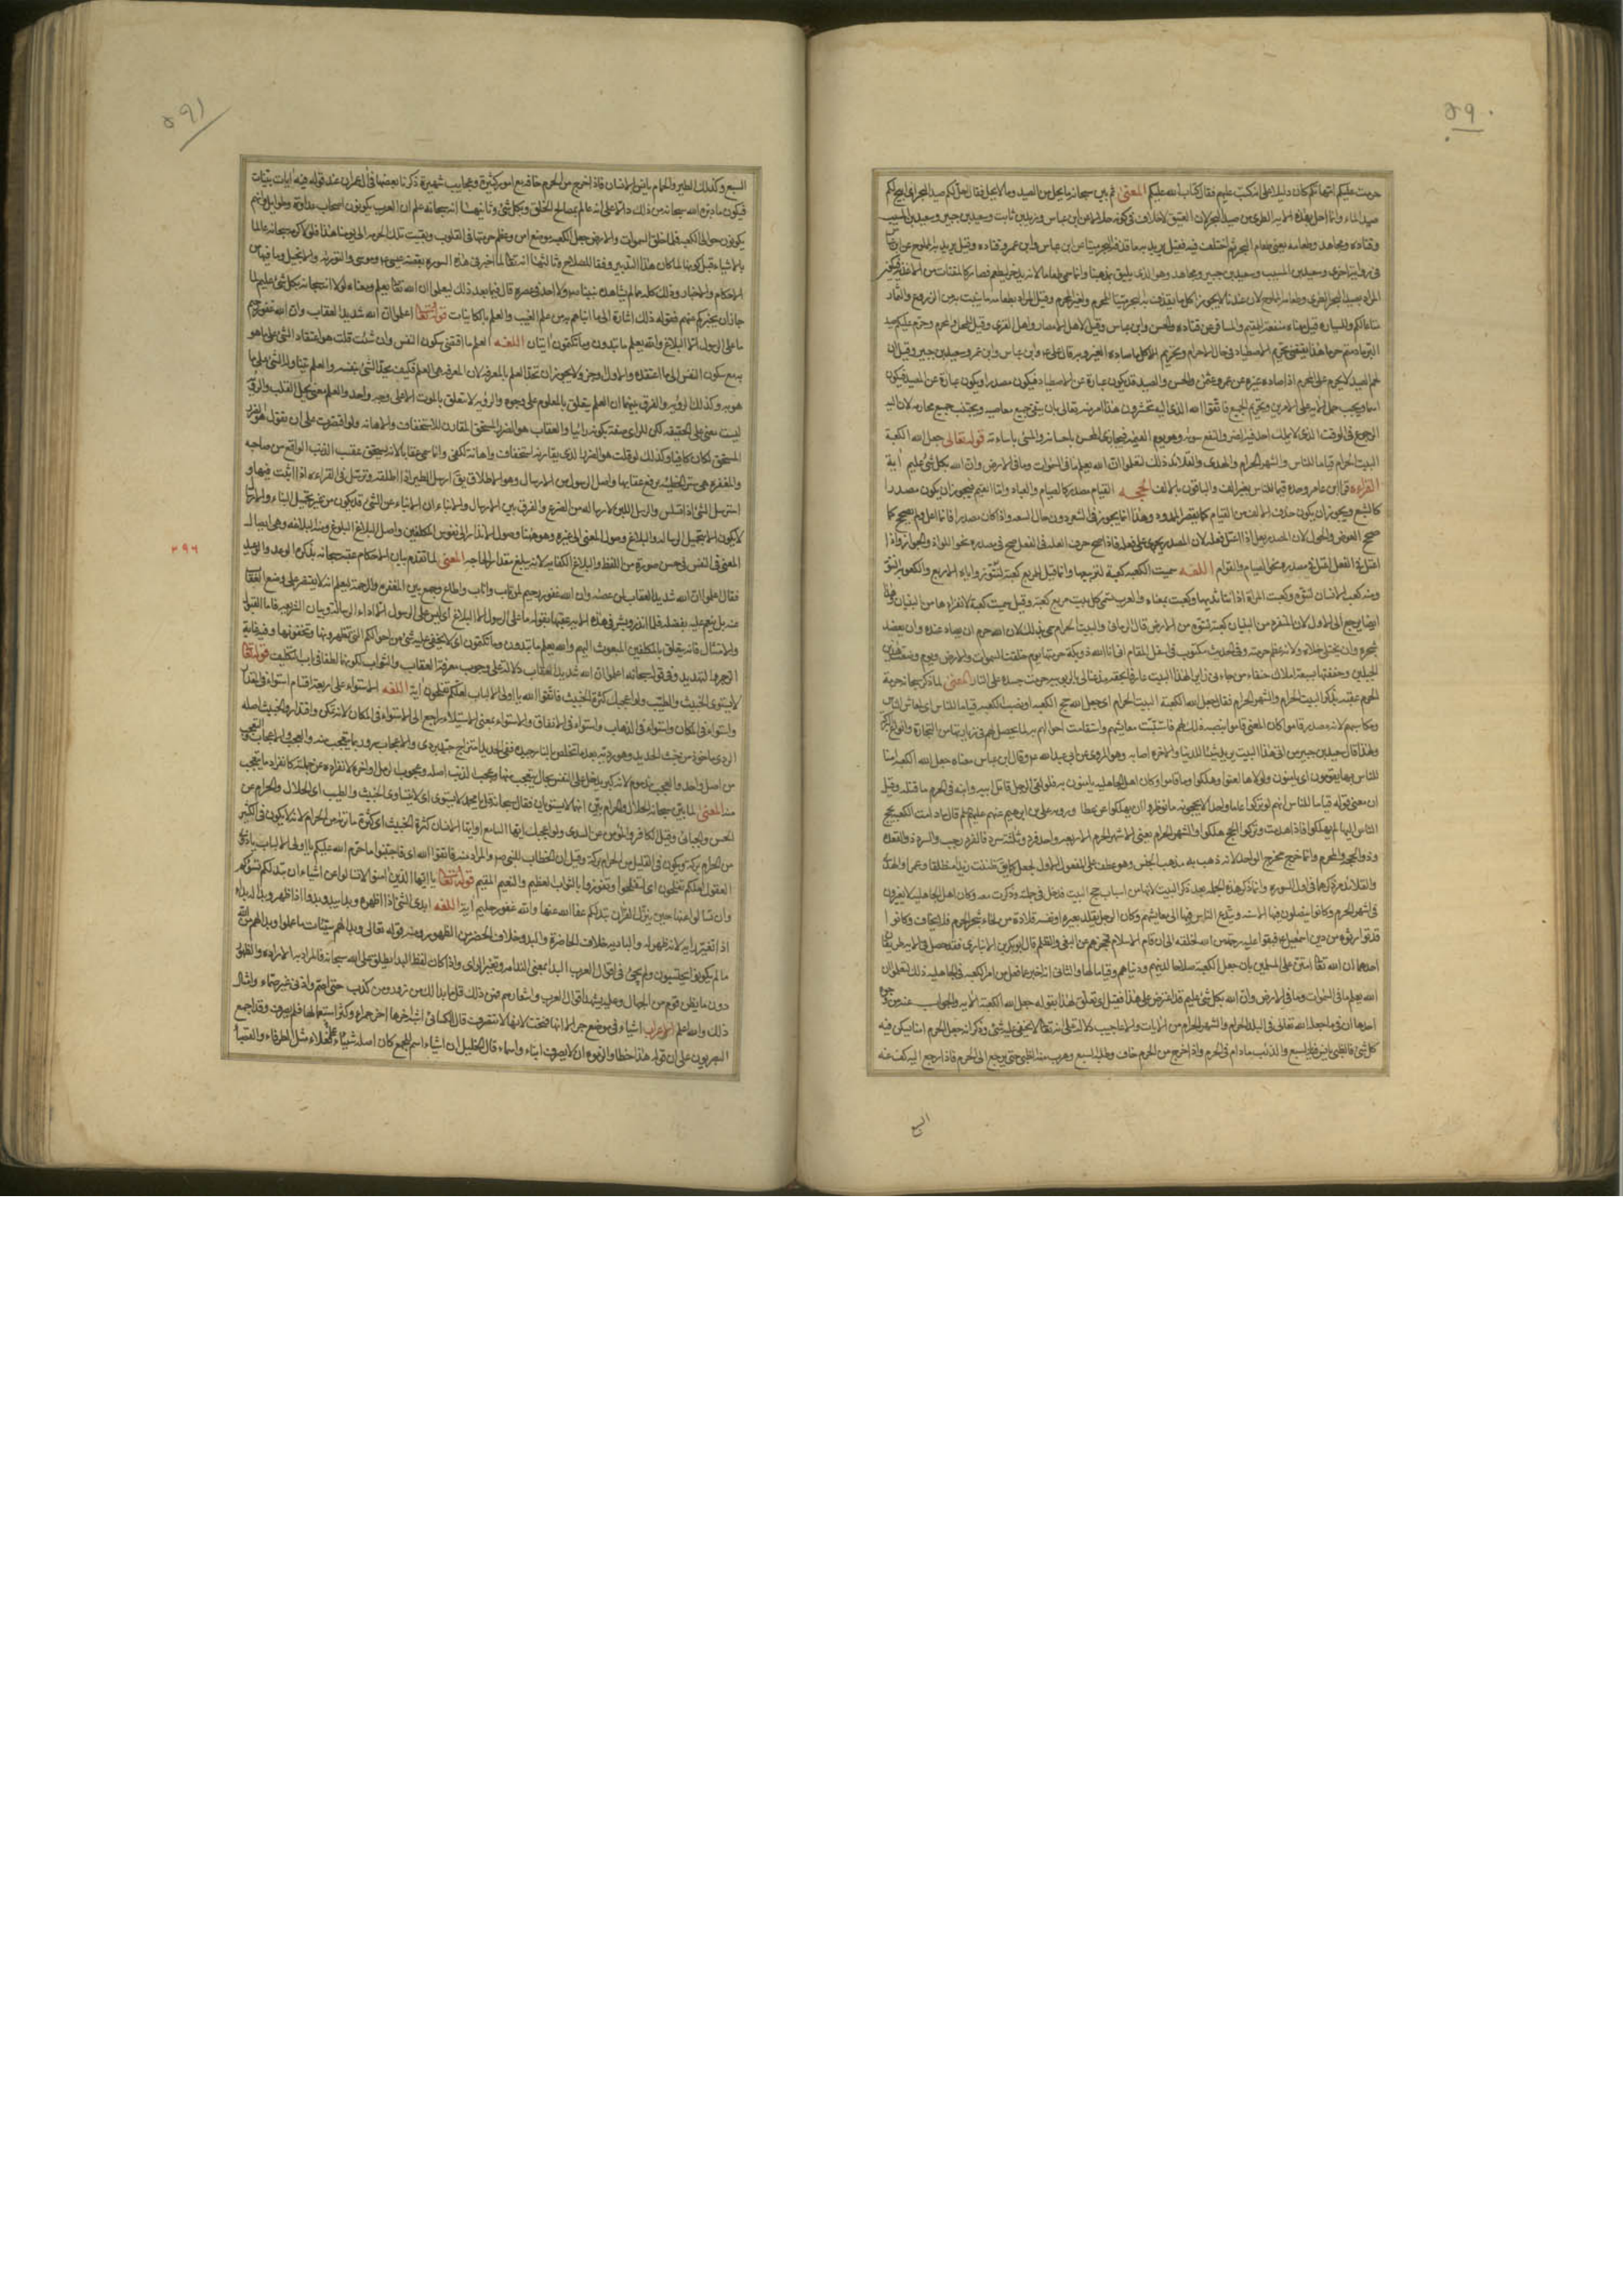 ٥٩٠
حرمت عليكم انها لكم كان دليلا على انه كتب عليهم فقال كتاب الله عليكم المعنى ثم بين سبحانه ما يحل من الصيد وما لا يحل فقال احل لكم صيد البحر اى ابيح لكم
صيد الماء وانما احل بهذه الاية الطرى من صيد البحر لان العتيق لا خلاف فى كونه حلالا عن ابن عباس وزيد بن ثابت وسعيد بن جبير وسعيد بن المسيب
وقتاده ومجاهد وطعامه يعنى طعام البحر ثم اختلف فيه فقيل يريد به ما قذفه البحر ميتا عن ابن عباس وابن عمر وقتاده وقيل يريد به المملوح عن ابن عباس
فى رواية اخرى وسعيد بن المسيب وسعيد بن جبير ومجاهد وهو الذى يليق بمذهبنا وانما سمى طعاما لانه يدخر ليطعم فصار كالمقتات من الاغذية فيكون
المراد بصيد البحر الطرى وطعامه المملوح لان عندنا لا يجوز اكل ما يقذف به البحر ميتا للمحرم ولغير المحرم وقيل المراد بطعامه ما ينبت بمائه من الزروع والثمار
متاعا لكم وللسيارة قيل معناه منفعة للمقيم والمسافر عن قتاده والحسن وابن عباس وقيل لاهل الامصار واهل القرى وقيل للمحل والمحرم وحرم عليكم صيد
البر ما دمتم حرما هذا يقتضى تحريم الاصطياد فى حال الاحرام وتحريم الاكل ما صاده الغير وبه قال على ع وابن عباس وابن عمر وسعيد بن جبير وقيل ان
لحم الصيد لا يحرم على المحرم اذا صاده غيره عن عمر وعثمن والحسن والصيد قد يكون عبارة عن الاصطياد فيكون مصدرا ويكون عبارة عن المصيد فيكون
اسما ويجب حمل الاية على الامرين وتحريم الجميع فاتقوا الله الذى اليه تحشرون هذا امر منه تعالى بان يتقى جميع معاصيه ويجتنب جميع محارمه لان اليه
الرجوع فى الوقت الذى لا يملك احد فيه الضر والنفع سواه وهو يوم القيمة فيجازى المحسن باحسانه والمسئ باساءته قوله تعالى جعل الله الكعبة
البيت الحرام قياما للناس والشهر الحرام والهدى والقلائد ذلك لتعلموا ان الله يعلم ما فى السموات وما فى الارض وان الله بكل شئ عليم آية
القراءة قرا ابن عامر وحده قيما للناس بغير الف والباقون بالالف الحجه القيام مصدر كالصيام والعياد واما القيم فيجوز ان يكون مصدرا
كالشبع ويجوز ان يكون حذف الالف من القيام كما يقصر الممدود وهذا انما يجوز فى الشعر دون حال السعه واذا كان مصدرا فانما اعل ولم يصحح كما
صحح العوض والحول لان المصدر يعل اذا اعتل فعله لان المصدر يجرى على فعله فاذا صح حرف العلة فى الفعل صح فى مصدره نحو اللواذ والجوار واذا
اعتل فى الفعل اعتل فى مصدره نحو الصيام والقيام اللغه سميت الكعبه كعبة لتربيعها وانما قيل للمربع كعبة لنتو زواياه الاربع والكعوبة النتو
ومنه كعب الانسان لنتوه وكعبت المراة اذا نتا ثديها وكعبت بمعناه والعرب تسمى كل بيت مربع كعبة وقيل سميت كعبة لانفرادها من البنيان وهذا
ايضا يرجع الى الاول لان المنفرد من البنيان كعبة لنتوه من الارض قال الرمانى والبيت الحرام سمى بذلك لان الله حرم ان يصاد صيده وان يعضد
شجره وان يختلى خلاه ولانه عظم حرمته وفى الحديث مكتوب فى اسفل المقام انى انا الله ذو بكة حرمتها يوم خلقت السموات والارض ويوم وضعت هذين
الجبلين وحففتها بسبعة املاك حنفاء من جاءنى زائرا لهذا البيت عارفا بحقه مذعنا لى بالربوبية حرمت جسده على النار المعنى لما ذكر سبحانه حرمة
الحرم عقبه بذكر البيت الحرام والشهر الحرام فقال جعل الله الكعبة البيت الحرام اى جعل الله حج الكعبه او نصب الكعبه قياما للناس اى لمعايش الناس
ومكاسبهم لانه مصدر قاموا كان المعنى قاموا بنصبه ذلك لهم فاستتبت معايشهم واستقامت احوالهم به لما يحصل لهم فى زيارتها من التجارة وانواع البركة
ولهذا قال سعيد بن جبير من اتى هذا البيت يريد شيئا للدنيا والاخرة اصابه وهو المروى عن ابى عبد الله ع وقال ابن عباس معناه جعل الله الكعبة امنا
للناس بها يقومون اى يامنون ولولاها لفنوا وهلكوا وما قاموا وكان اهل الجاهليه يامنون به فلو لقى الرجل قاتل ابيه وابنه فى الحرم ما قتله وقيل
ان معنى قوله قياما للناس انهم لو تركوا عاما واحدا لا يحجونه ما نوظروا ان يهلكوا عن عطا ورواه على بن ابرهيم عنهم عليهم السلم قال ما دامت الكعبة يحج
الناس اليها لم يهلكوا فاذا هدمت وتركوا الحج هلكوا والشهر الحرام يعنى الاشهر الحرم الاربعة واحد فرد وثلثة سرد فالفرد رجب والسرد ذو القعده
وذو الحجه والمحرم وانما خرج مخرج الواحد لانه ذهب به مذهب الجنس وهو عطف على المفعول الاول لجعل كما يق ظننت زيدا منطلقا وعمرا والهدى
والقلائد مر ذكرهما فى اول السوره وانما ذكر هذه الجمله بعد ذكر البيت لانها من اسباب حج البيت فدخل فى جملته وذكرت معه وكان اهل الجاهليه لا يغزون
فى اشهر الحرم وكانوا ينصلون فيها الاسنه ويتفرغ الناس فيها الى معايشهم وكان الرجل يقلد بعيره او نفسه قلادة من لحاء شجر الحرم فلا يخاف وكانوا
قد توارثوه من دين اسمعيل ع فبقوا عليه رحمة من الله لخلقه الى ان قام الاسلام فحجزهم عن البغى والظلم قال ابو بكر بن الانبارى فقد حصل فى الاية طريقان
احدهما ان الله تعالى امتن على المسلمين بان جعل الكعبة صلاحا لدينهم ودنياهم وقياما لها والثانى انه اخبر عما فعله من امر الكعبه فى الجاهليه ذلك لتعلموا ان
الله يعلم ما فى السموات وما فى الارض وان الله بكل شئ عليم قد اعترض على هذا فقيل اى تعلق لهذا بقوله جعل الله الكعبة الاية والجواب عنه من وجوه
احدها ان فيما جعله الله تعالى فى البلد الحرام والشهر الحرام من الايات والاعاجيب دلالة على انه تعالى لا يخفى عليه شئ وذكر انه جعل الحرم امنا يسكن فيه
كل شئ فالظبى يانس فيه بالسبع والذئب ما دام فى الحرم واذا خرج من الحرم خاف وطلبه السبع وهرب منه الظبى حتى يرجع الى الحرم فاذا رجع اليه كف عنه
السبع
٥٩١
السبع وكذلك الطير والحمام يانس بالانسان فاذا خرج من الحرم خافه مع امور كثيرة وعجايب شهيرة ذكرنا بعضها فى ال عمران عند قوله فيه ايات بينات
فيكون ما دبره الله سبحانه من ذلك دالا على انه عالم بمصالح الخلق وبكل شئ وثانيها انه سبحانه علم ان العرب يكونون اصحاب عداوة وحقد وانهم
يكونون حوالى الكعبه فلما خلق السموات والارض جعل الكعبه موضع امن وعظم حرمتها فى القلوب وبقيت تلك الحرمة الى يومنا هذا فلولا كونه سبحانه عالما
بالاشياء قبل كونها لما كان هذا التدبير وفقا للصلاح وثالثها انه تعالى لما اخبر فى هذه السوره بقصة عيسى وموسى والتوريه والانجيل وما فيها من
الاحكام والاخبار وذلك كله مما لم يشاهده نبينا ص ولا احد فى عصره قال فيما بعد ذلك ليعلموا ان الله تعالى يعلم ومعناه لولا انه سبحانه بكل شئ عليم لما
جاز ان يخبركم عنهم فقوله ذلك اشارة الى ما انباهم به من علم الغيب والعلم بالكاينات قوله تعالى اعلموا ان الله شديد العقاب وان الله غفور رحيم
ما على الرسول الا البلاغ والله يعلم ما تبدون وما تكتمون ايتان اللغه العلم ما اقتضى سكون النفس وان شئت قلت هو اعتقاد الشئ على ما هو
به مع سكون النفس الى ما اعتقده والاول اوجز ولا يجوز ان يحد العلم بالمعرفة لان المعرفه هى العلم فكيف يحد الشئ بنفسه والعلم يتناول الشئ على ما
هو به وكذلك الرؤيه والفرق بينهما ان العلم يتعلق بالمعلوم على وجوه والرؤيه لا تتعلق بالمرئى الا على وجه واحد والعلم معنى يحل القلب والرؤية
ليست معنى على الحقيقه لكن للرائى صفة بكونه رائيا والعقاب هو الضرر المستحق المقارن للاستخفاف والاهانه ولو اقتصرت على ان تقول هو الضرر
المستحق لكان كافيا وكذلك لو قلت هو الضرر الذى يقارنه استخفاف واهانة لكفى وانما سمى عقابا لانه يستحق عقيب الذنب الواقع من صاحبه
والمغفره هى ستر الخطيئه برفع عقابها واصل الرسول من الارسال وهو الاطلاق يق ارسل الطير اذا اطلقه وترسل فى القراءه اذا تثبت فيها و
استرسل الشئ اذا تسلس والرسل اللبن لارساله من الضرع والفرق بين الارسال والانباء ان الانباء عن الشئ قد يكون من غير تحميل النباء والارسال
لا يكون الا بتحميل الرساله والبلاغ وصول المعنى الى غيره وهو هيهنا وصول الانذار الى نفوس المكلفين واصل البلاغ البلوغ ومنه البلاغه وهى ايصال
المعنى الى النفس فى حسن صورة من اللفظ والبلاغ الكفايه لانه يبلغ مقدار الحاجه المعنى لما تقدم بيان الاحكام عقبه سبحانه بذكر الوعد والوعيد
فقال اعلموا ان الله شديد العقاب لمن عصاه وان الله غفور رحيم لمن تاب واناب واطاع وجمع بين المغفرة والرحمة ليعلم انه لا يقتصر على وضع العقاب
عنه بل ينعم عليه بفضله فلما انذر وبشر فى هذه الاية عقبها بقوله ما على الرسول الا البلاغ اى ليس على الرسول الا اداء الرسالة وبيان الشريعه فاما القبول
والامتثال فانه يتعلق بالمكلفين المبعوث اليهم والله يعلم ما تبدون وما تكتمون اى لا يخفى عليه شئ من احوالكم التى تظهرونها وتخفونها وفيه غاية
الزجر والتهديد وفى قوله سبحانه اعلموا ان الله شديد العقاب دلالة على وجوب معرفة العقاب والثواب لكونهما لطفا فى باب التكليف قوله تعالى
لا يستوى الخبيث والطيب ولو اعجبك كثرة الخبيث فاتقوا الله يا اولى الالباب لعلكم تفلحون آية اللغه الاستواء على اربعة اقسام استواء فى المقدار
واستواء فى المكان واستواء فى الذهاب واستواء فى الانفاق والاستواء بمعنى الاستيلاء راجع الى الاستواء فى المكان لانه تمكن واقتدار والخبيث اصله
الردى ماخوذ من خبث الحديد وهو رديه بعد ما تخلص بالنار جيده ففى الحديد امتزاج جيد بردى والاعجاب سرور بما يتعجب منه والعجب والاعجاب والتعجب
من اصل واحد والعجب مذموم لانه كبر يدخل على النفس بحال يتعجب منها وعجب الذنب اصله وعجوب الرمل اواخره لانفراده عن جملته كانفراد ما يتعجب
منه المعنى لما بين سبحانه الحلال والحرام بين انهما لا يستويان فقال سبحانه قل يا محمد لا يستوى اى لا يتساوى الخبيث والطيب اى الحلال والحرام عن
الحسن والجبائى وقيل الكافر والمؤمن عن السدى ولو اعجبك ايها السامع او ايها الانسان كثرة الخبيث اى كثرة ما تراه من الحرام لانه لا يكون فى الكثير
من الحرام بركة ويكون فى القليل من الحلال بركة وقيل ان الخطاب للنبى ص والمراد امته فاتقوا الله اى فاجتنبوا ما حرم الله عليكم يا اولى الالباب يا ذوى
العقول لعلكم تفلحون اى لتفلحوا وتفوزوا بالثواب العظيم والنعيم المقيم قوله تعالى يا ايها الذين امنوا لا تسالوا عن اشياء ان تبد لكم تسؤكم
وان تسالوا عنها حين ينزل القران تبد لكم عفا الله عنها والله غفور حليم آية اللغه ابدى الشئ اذا اظهره وبدا يبدو بدوا اذا ظهر وبدا له بداء
اذا تغير رايه لانه ظهر له والباديه خلاف الحاضرة والبدو خلاف الحضر من الظهور ومنه قوله تعالى وبدا لهم سيئات ما عملوا وبدا لهم من الله
ما لم يكونوا يحتسبون ولم يجئ فى اقوال العرب البداء بمعنى الندامة وتغير الراى واذا كان لفظ البداء يطلق على الله سبحانه فالمراد به الارادة والظهور
دون ما يظن قوم من الجهال وعليه يشهد اقوال العرب واشعارهم فمن ذلك قل ما بدا لك من زور ومن كذب حتى اصم واذنى غير صماء وامثال
ذلك والله اعلم الاعراب اشياء فى موضع جر الا انها فتحت لانها لا تنصرف قال الكسائى اشبه اخرها اخر حمراء وكثر استعمالها فلم يصرف وقد اجمع
البصريون على ان قوله هذا خطا والزموه ان لا يصرف ابناء واسماء قال الخليل ان اشياء اسم للجمع كان اصله شيئاء على فعلاء مثل الطرفاء والقصباء
٢٩٦